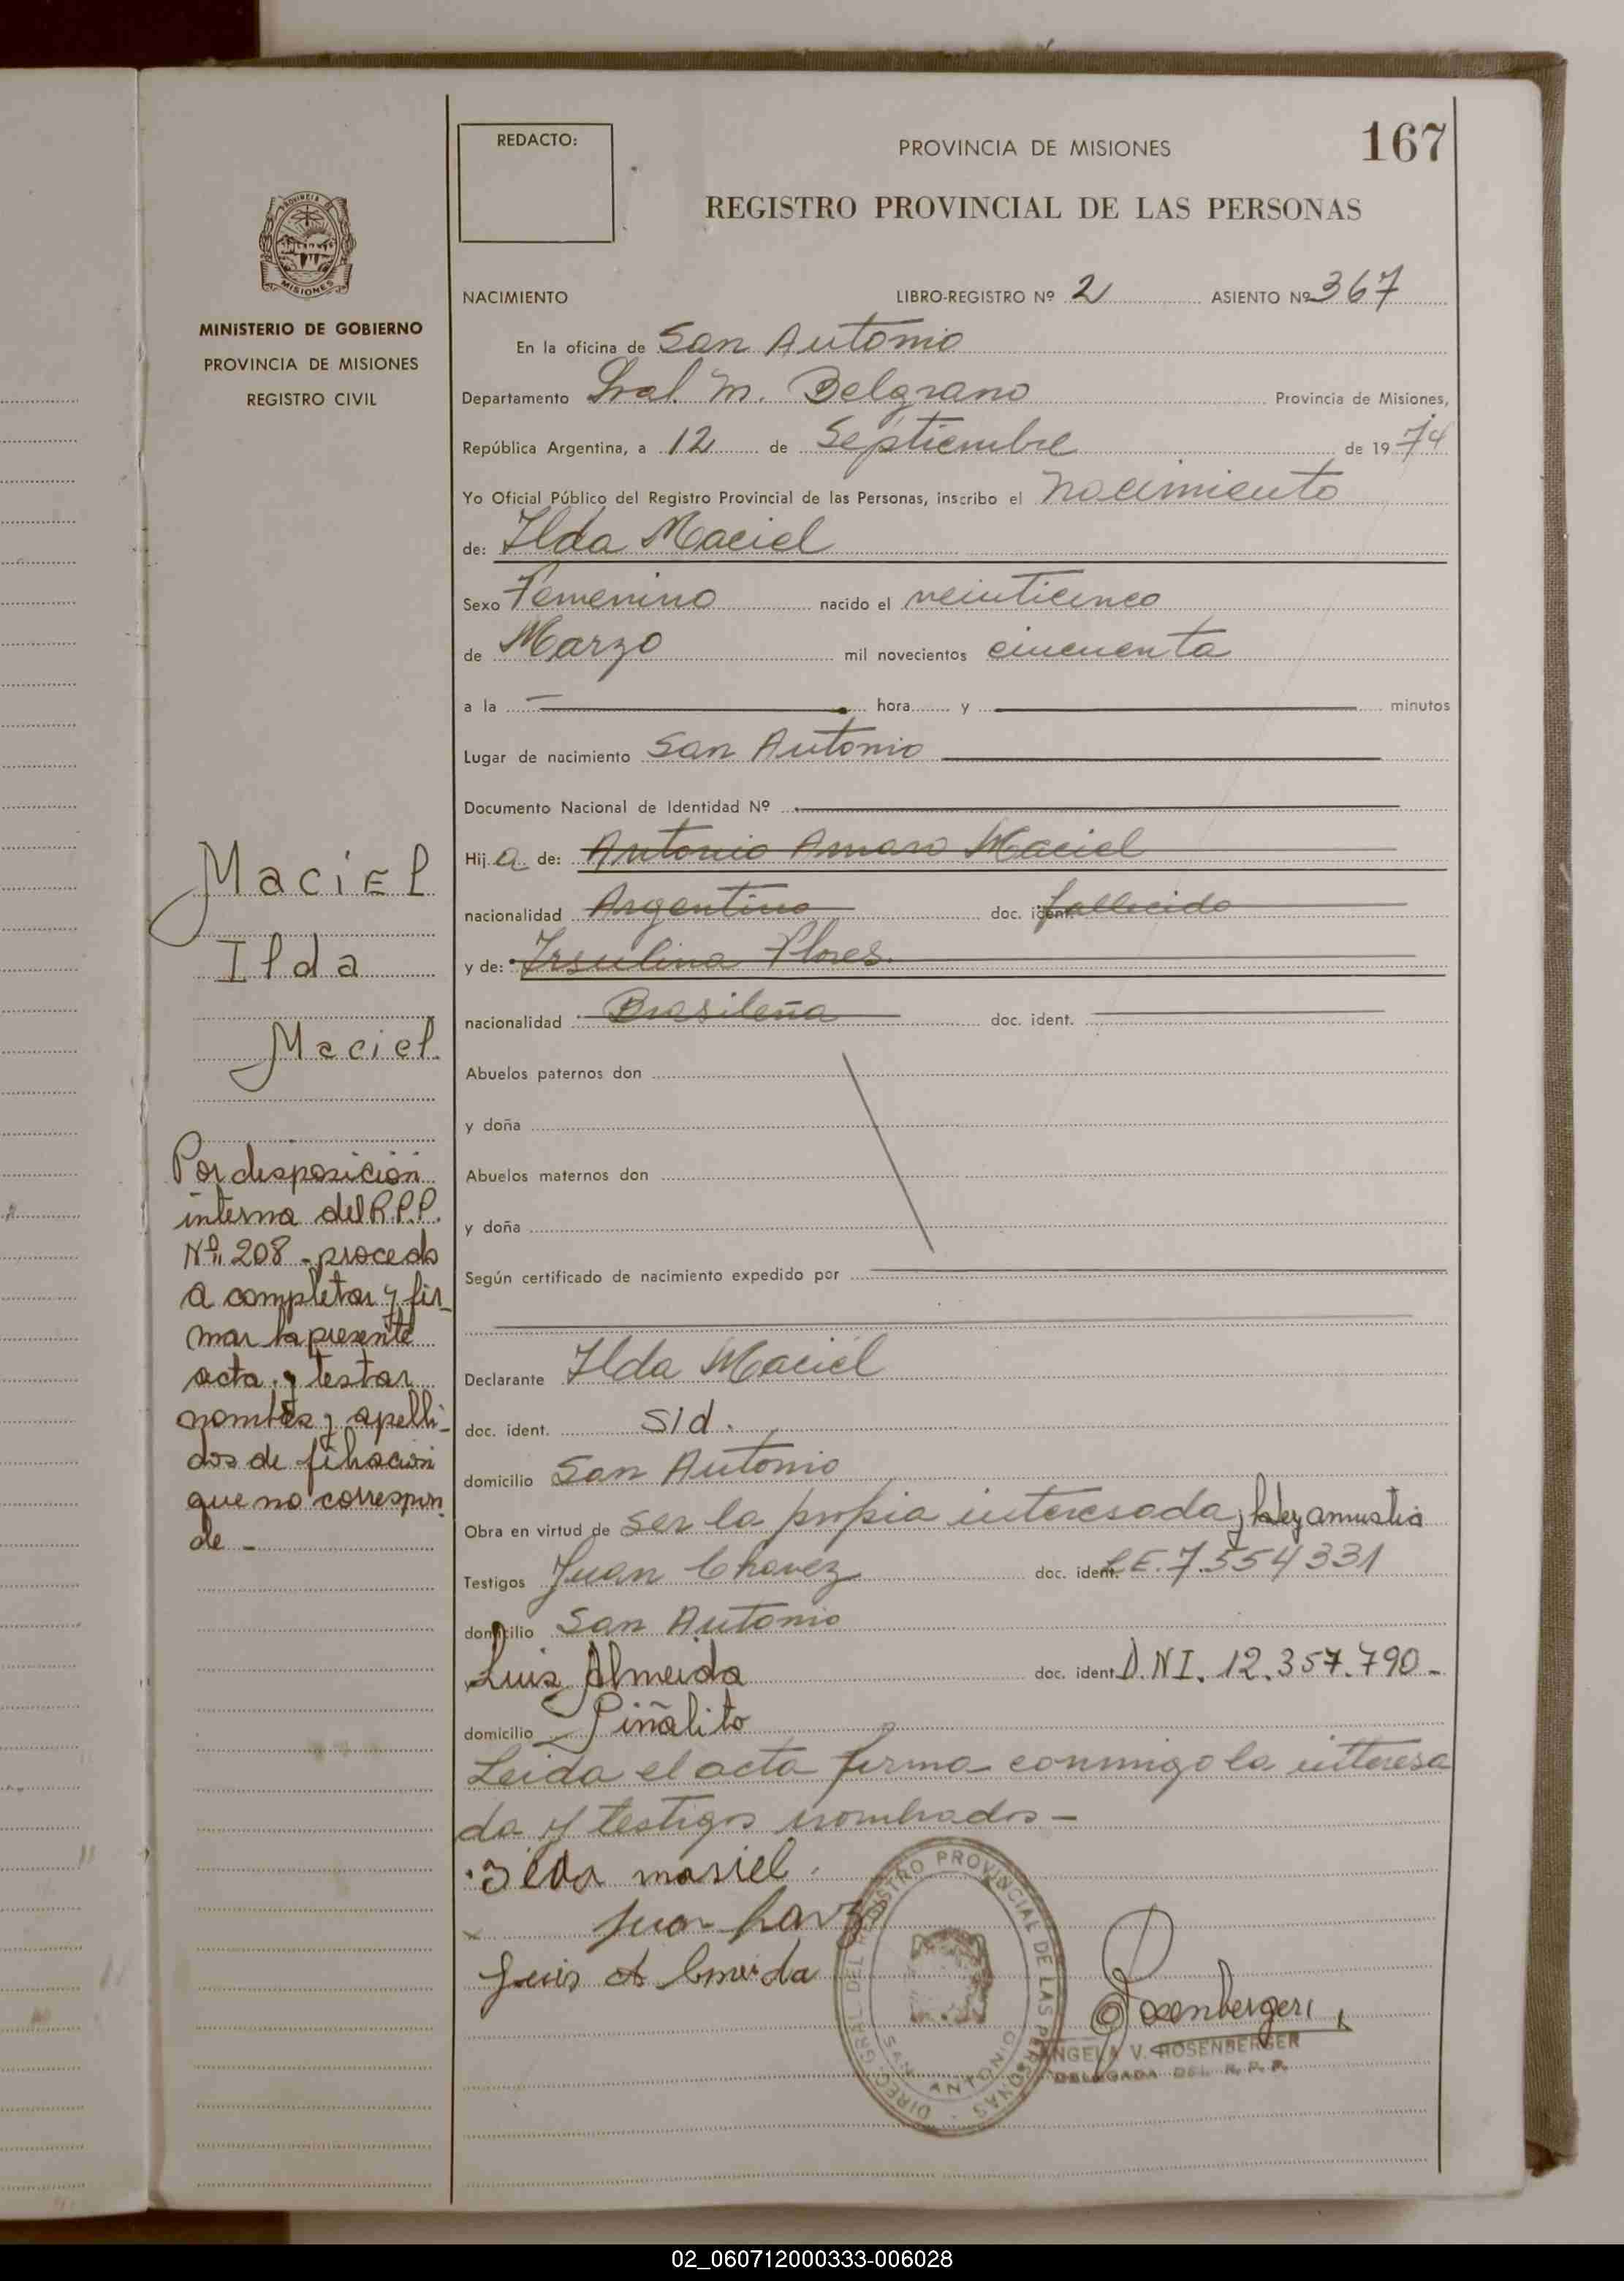 167
REDACTO:
PROVINCIA DE MISIONES
REGISTRO PROVINCIAL DE LAS PERSONAS
MINISTERIO DE GOBIERNO
PROVINCIA DE MISIONES
REGISTRO CIVIL
NACIMIENTO LIBRO-REGISTRO Nº 2 ASIENTO Nº 367
En la oficina de San Antonio
Departamento Gral. M. Belgrano Provincia de Misiones,
República Argentina, a 12 de Septiembre de 1974
Yo Oficial Público del Registro Provincial de las Personas, inscribo el nacimiento
de: Ilda Maciel
Sexo Femenino nacido el veinticinco
de Marzo mil novecientos cincuenta
a la hora y minutos
Lugar de nacimiento San Antonio
Documento Nacional de Identidad Nº
Hija de: Antonio Amaro Maciel
nacionalidad Argentino doc. ident. fallecido
y de: Irsulina Flores.
nacionalidad Brasileña doc. ident.
Abuelos paternos don
y doña
Abuelos maternos don
y doña
Según certificado de nacimiento expedido por
Declarante Ilda Maciel
doc. ident. S/d.
domicilio San Antonio
Obra en virtud de ser la propia interesada y ley amnistia
Testigos Juan Chavez doc. ident. L.E. 7.554331
domicilio San Antonio
Luis Almeida doc. ident. D.NI. 12.357.790-
domicilio Piñalito
Leida el acta firma conmigo la interesa
da y testigos nombrados -
Ilda masiel.
Luis Almeida
Rosenberger
ANGELA V. ROSENBERGER
DELEGADA DEL R. P. P.
DIREC. GRAL. DEL REGISTRO PROVINCIAL DE LAS PERSONAS
SAN ANTONIO
MaciEl
Ilda
Maciel
Por disposición
interna del R.P.P.
Nº 208 - procedo
a completar y fir_
mar la presente
acta y testar
nombres y apelli_
dos de filiación
que no correspon_
de -
PROVINCIA DE
MISIONES
02_060712000333-006028